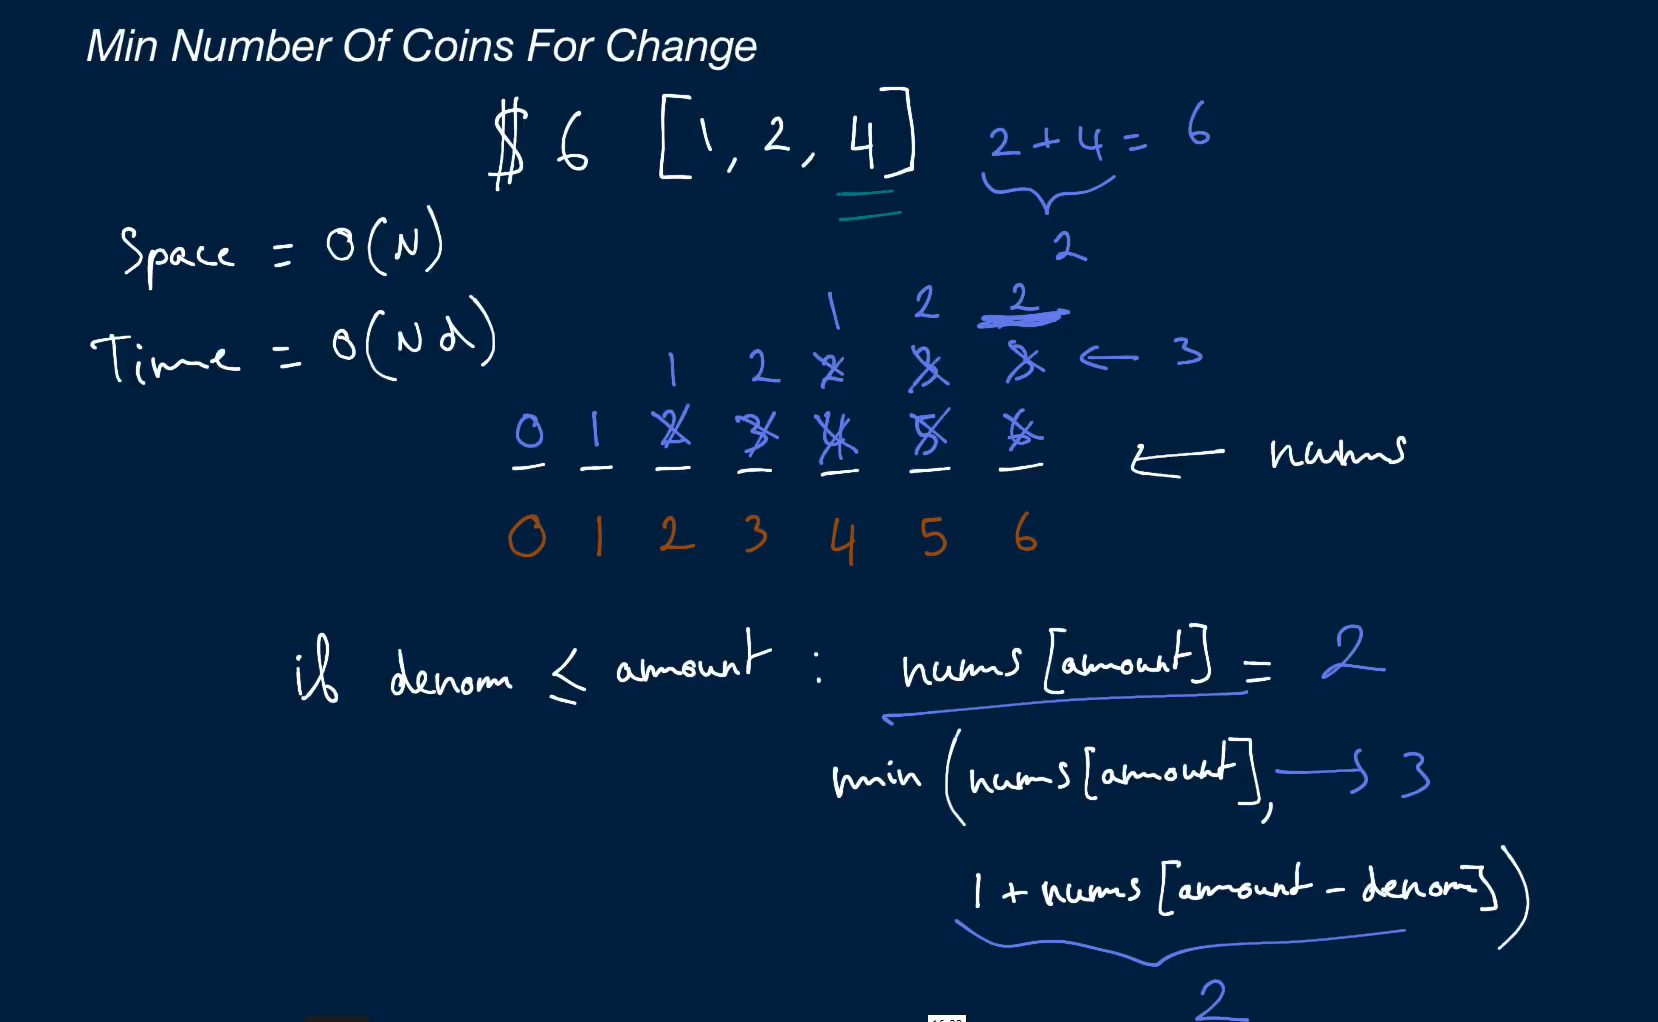 Min Number Of Coins For Change
$ 6 [1, 2, 4] 2 + 4 = 6
2
Space = O(N)
1 2 2
Time = O(Nd)
1 2 2 3 3 ← 3
0 1 2 3 4 5 6
← nums
0 1 2 3 4 5 6
if denom ≤ amount : nums [amount] = 2
min (nums [amount], → 3
1 + nums [amount - denom])
2